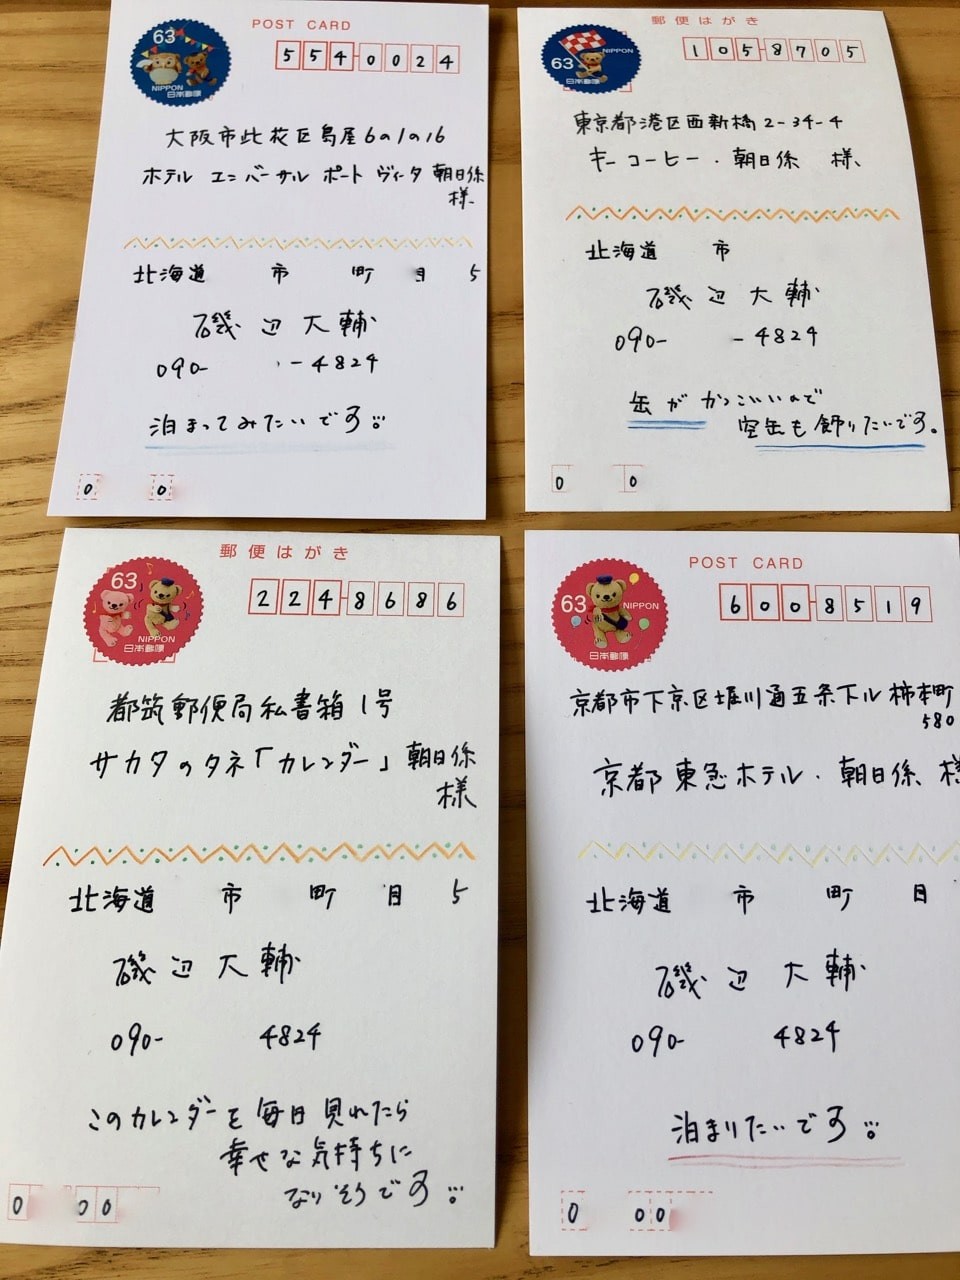 63
NIPPON
日本郵便
POST CARD
5540024
大阪市此花区島屋6の1の16
ホテル ユニバーサル ポート ヴィータ 朝日係
様
北海道 市 町 目 5
磯辺大輔
090- -4824
泊まってみたいです
0 0
63
NIPPON
日本郵便
郵便はがき
1058705
東京都港区西新橋2-34-4
キーコーヒー・朝日係 様
北海道 市
磯辺大輔
090- -4824
缶がかっこいいので
空缶も飾りたいです。
0 0
63
NIPPON
日本郵便
郵便はがき
2248686
都筑郵便局私書箱1号
サカタのタネ「カレンダー」朝日係
様
北海道 市 町 目 5
磯辺大輔
090- 4824
このカレンダーを毎日見れたら
幸せな気持ちに
なりそうです
0 00
63
NIPPON
日本郵便
POST CARD
6008519
京都市下京区堀川通五条下ル柿本町
580
京都東急ホテル・朝日係 様
北海道 市 町 目
磯辺大輔
090- 4824
泊まりたいです
0 00